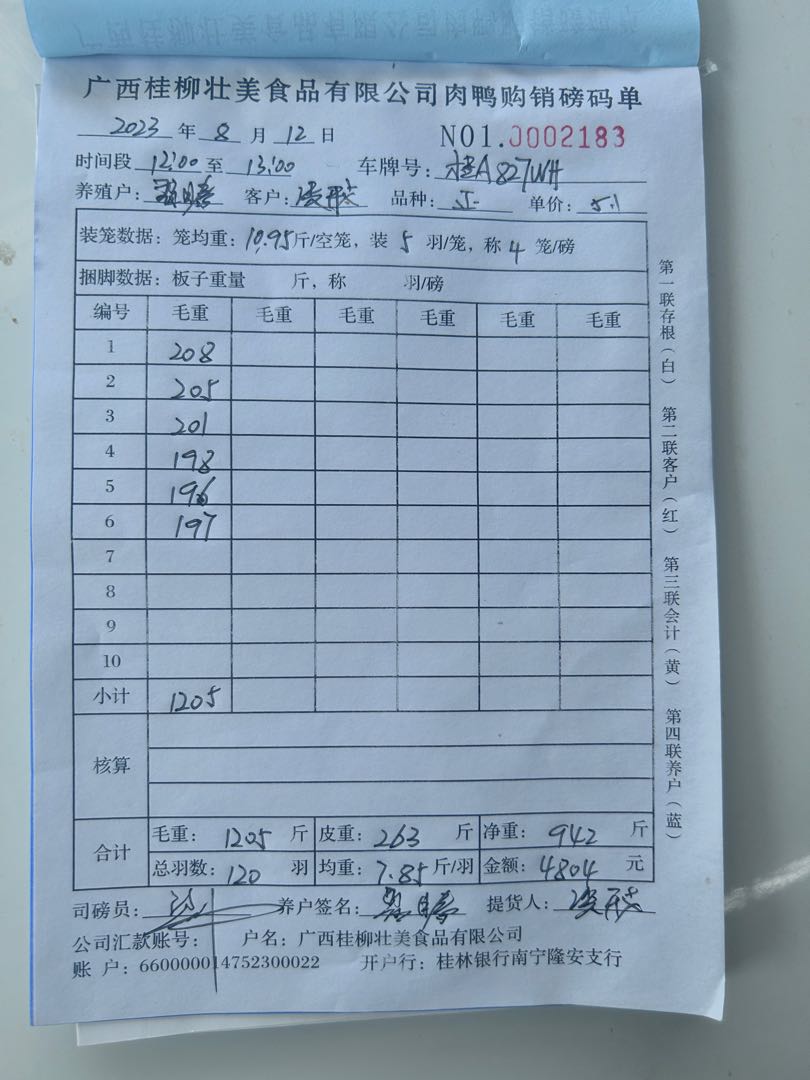 广西桂柳壮美食品有限公司肉鸭购销磅码单
2023 年 8 月 12 日 NO1.0002183
时间段 12:00 至 13:00 车牌号: 桂A827WH
养殖户: 客户: 品种: 单价: 5.1
装笼数据: 笼均重: 10.95斤/空笼, 装 5 羽/笼, 称 4 笼/磅
捆脚数据: 板子重量 斤, 称 羽/磅
编号 毛重 毛重 毛重 毛重 毛重 毛重
1 208
2 205
3 201
4 198
5 196
6 197
7
8
9
10
小计 1205
核算
合计 毛重: 1205 斤 皮重: 263 斤 净重: 942 斤
总羽数: 120 羽 均重: 7.85 斤/羽 金额: 4804 元
司磅员: 养户签名: 提货人:
公司汇款账号: 户名: 广西桂柳壮美食品有限公司
账 户: 660000014752300022 开户行: 桂林银行南宁隆安支行
第一联存根(白) 第二联客户(红) 第三联会计(黄) 第四联养户(蓝)